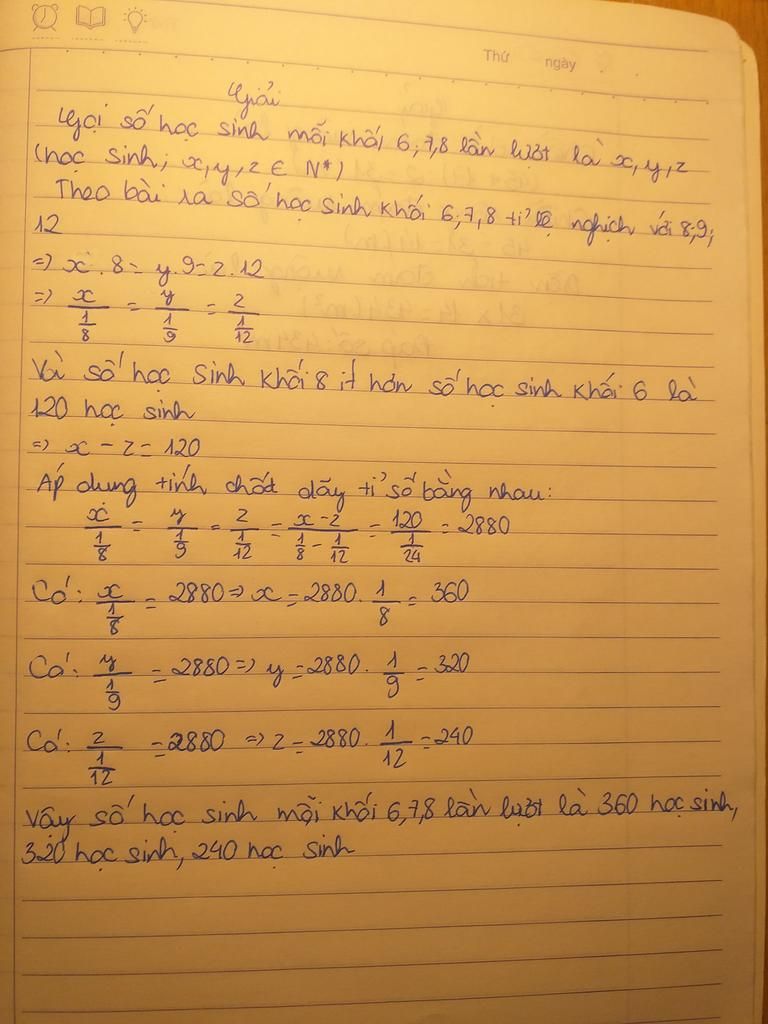 Thứ ngày
Giải
Gọi số học sinh mỗi khối 6;7,8 lần lượt là x,y,z
(học sinh; x,y,z ∈ N*)
Theo bài ra số học sinh khối 6;7,8 tỉ lệ nghịch với 8;9;
12
=> x.8 = y.9 = z.12
=> x/(1/8) = y/(1/9) = z/(1/12)
Và số học sinh khối 8 ít hơn số học sinh khối 6 là
120 học sinh
=> x - z = 120
Áp dung tính chất dãy tỉ số bằng nhau:
x/(1/8) = y/(1/9) = z/(1/12) = (x-z)/(1/8 - 1/12) = 120/(1/24) = 2880
Có: x/(1/8) = 2880 => x = 2880. 1/8 = 360
Có: y/(1/9) = 2880 => y = 2880. 1/9 = 320
Có: z/(1/12) = 2880 => z = 2880. 1/12 = 240
Vậy số học sinh mỗi khối 6,7,8 lần lượt là 360 học sinh,
320 học sinh, 240 học sinh